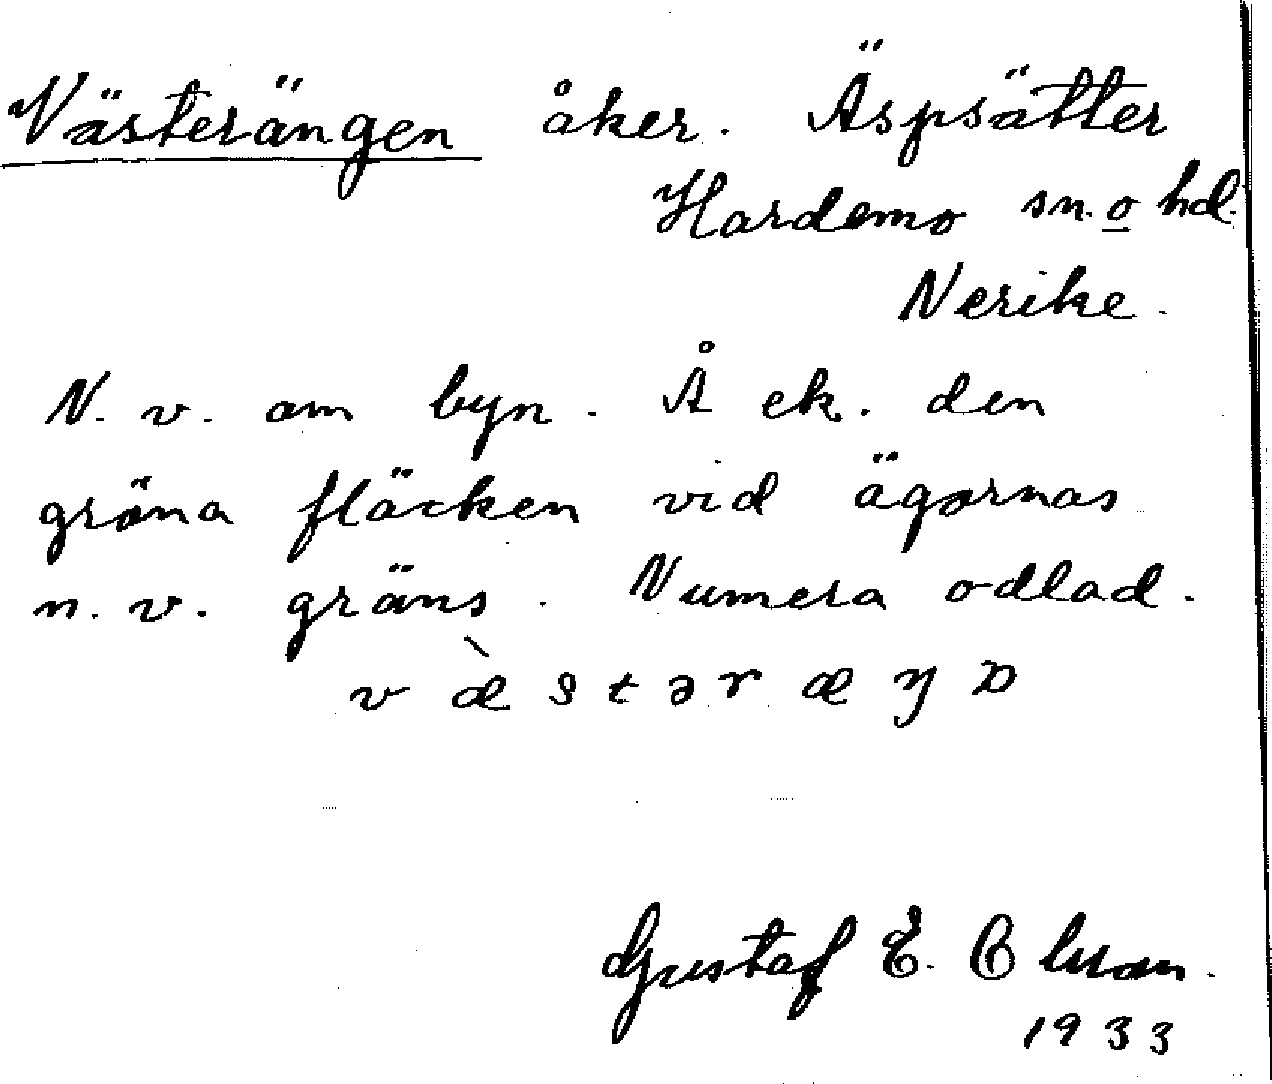 Västerängen åker. Äspsätter
Hardemo sn. o hd.
Nerike.
N. v. om byn. Å ek. den
gröna fläcken vid ägornas
n. v. gräns. Numera odlad.
væ̀stəræŋɒ
Gustaf E.
1933